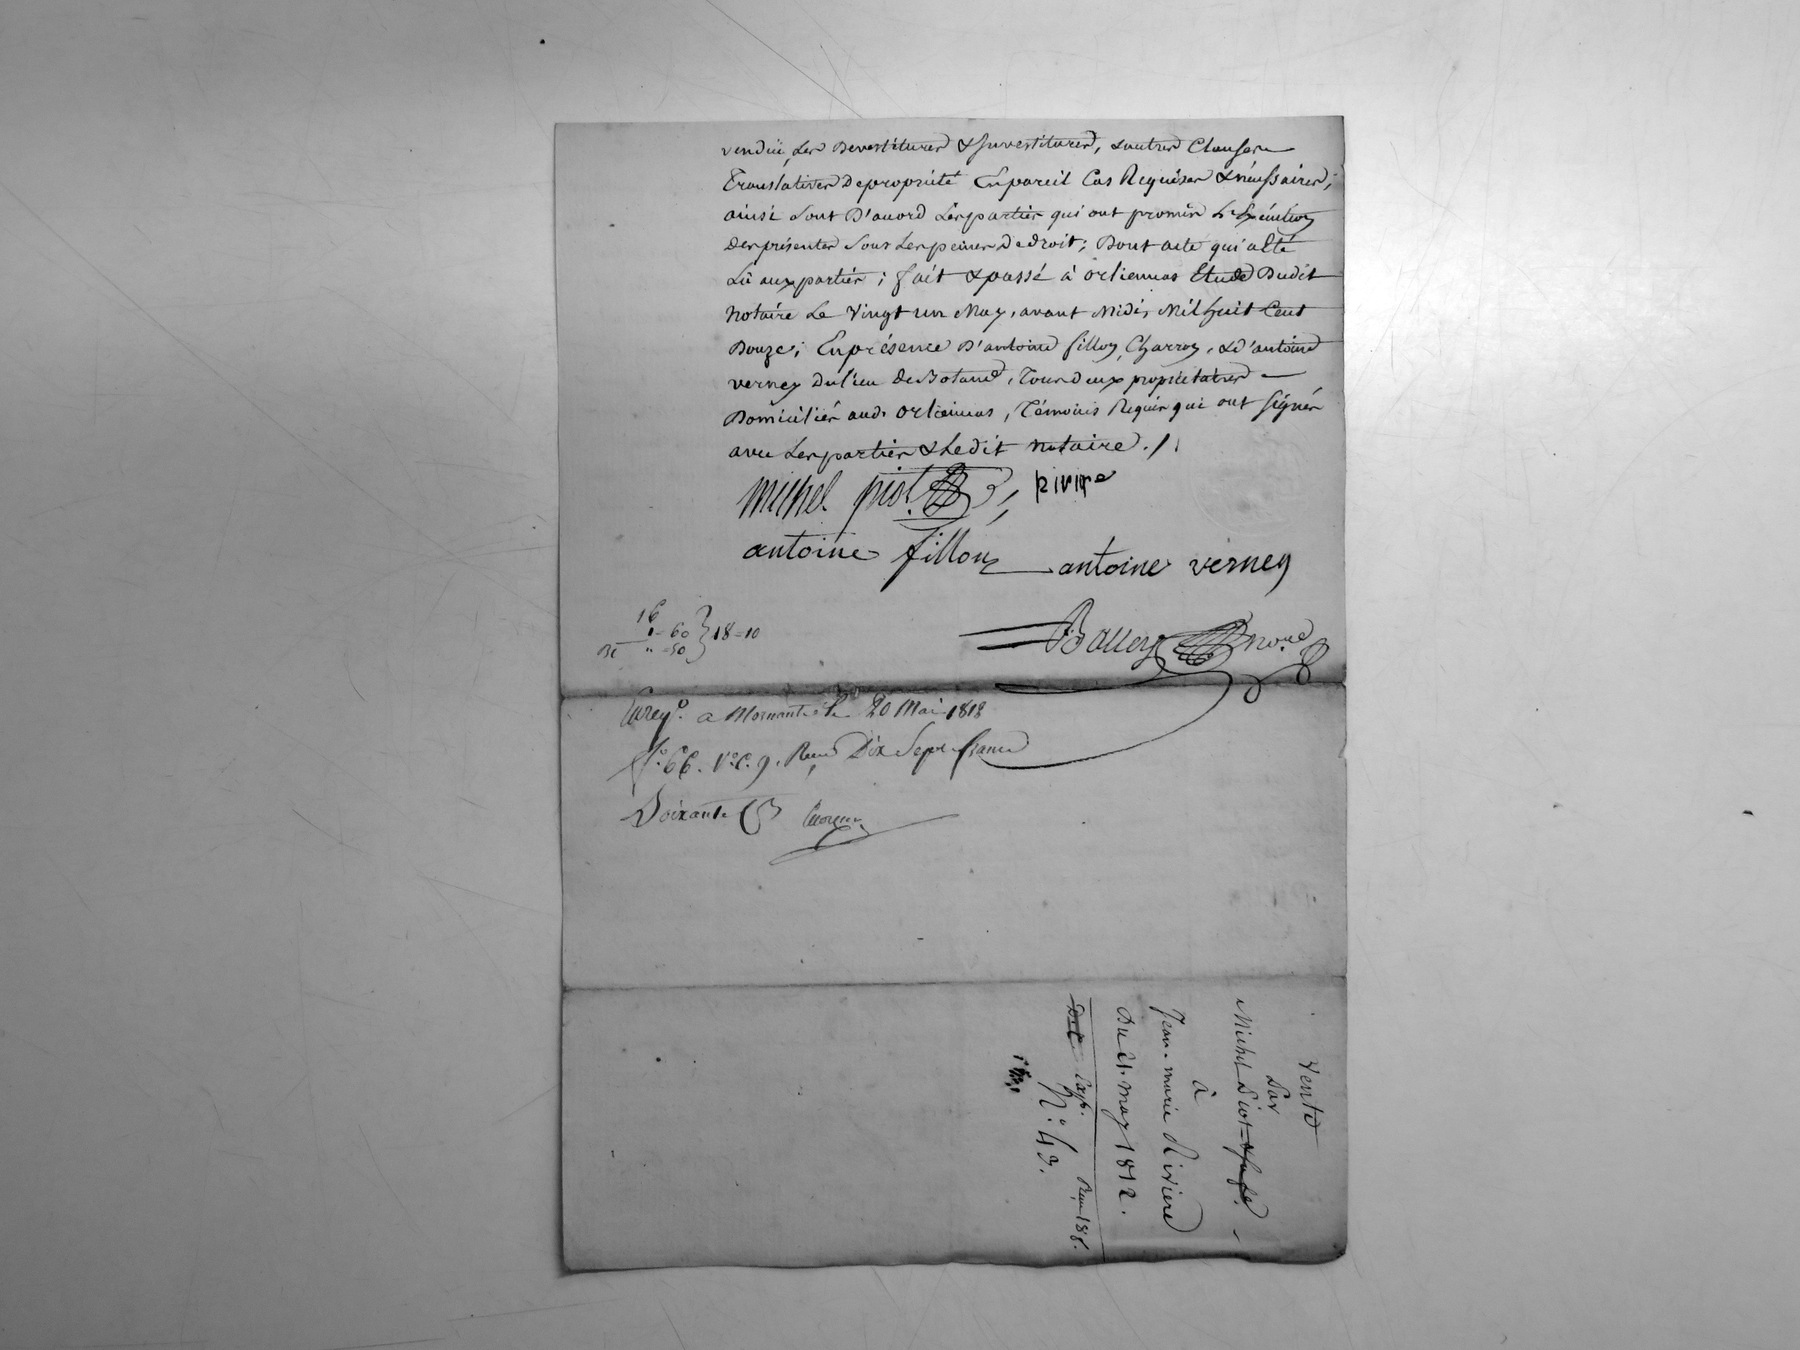 vendu, les Devestitures & Investitures, & autres Clauses
Translatives de propriété En pareil Cas Requises & nécessaires;
ainsi sont D'accord Les parties qui ont promis L'Exécution
Des présentes sous Les peines De droit; Dont acte qui a Eté
Lû aux parties; fait & passé à orliennas Etude Dudit
Notaire Le Vingt un May, avant Midi, Mil huit Cent
Douze; En présence D'antoine fillon, Charron, & d'antoine
verney du lieu de Botand, Tous deux propriétaires
Domiciliés aud. orliennas, Témoins Requis qui ont signés
avec Les parties & Ledit notaire./.
michel piot
rivire
antoine fillon
antoine verney
16
1-60
18=10
" =50
Enregé. a Mornant le 20 Mai 1812
fo. 66. Vo. C. 9. Reçu Dix Sept francs
Soixante
Vente
Par
Michel Piot
à
Jean-marie Rivière
Du 21. may 1812.
Exp.
N.o 43.